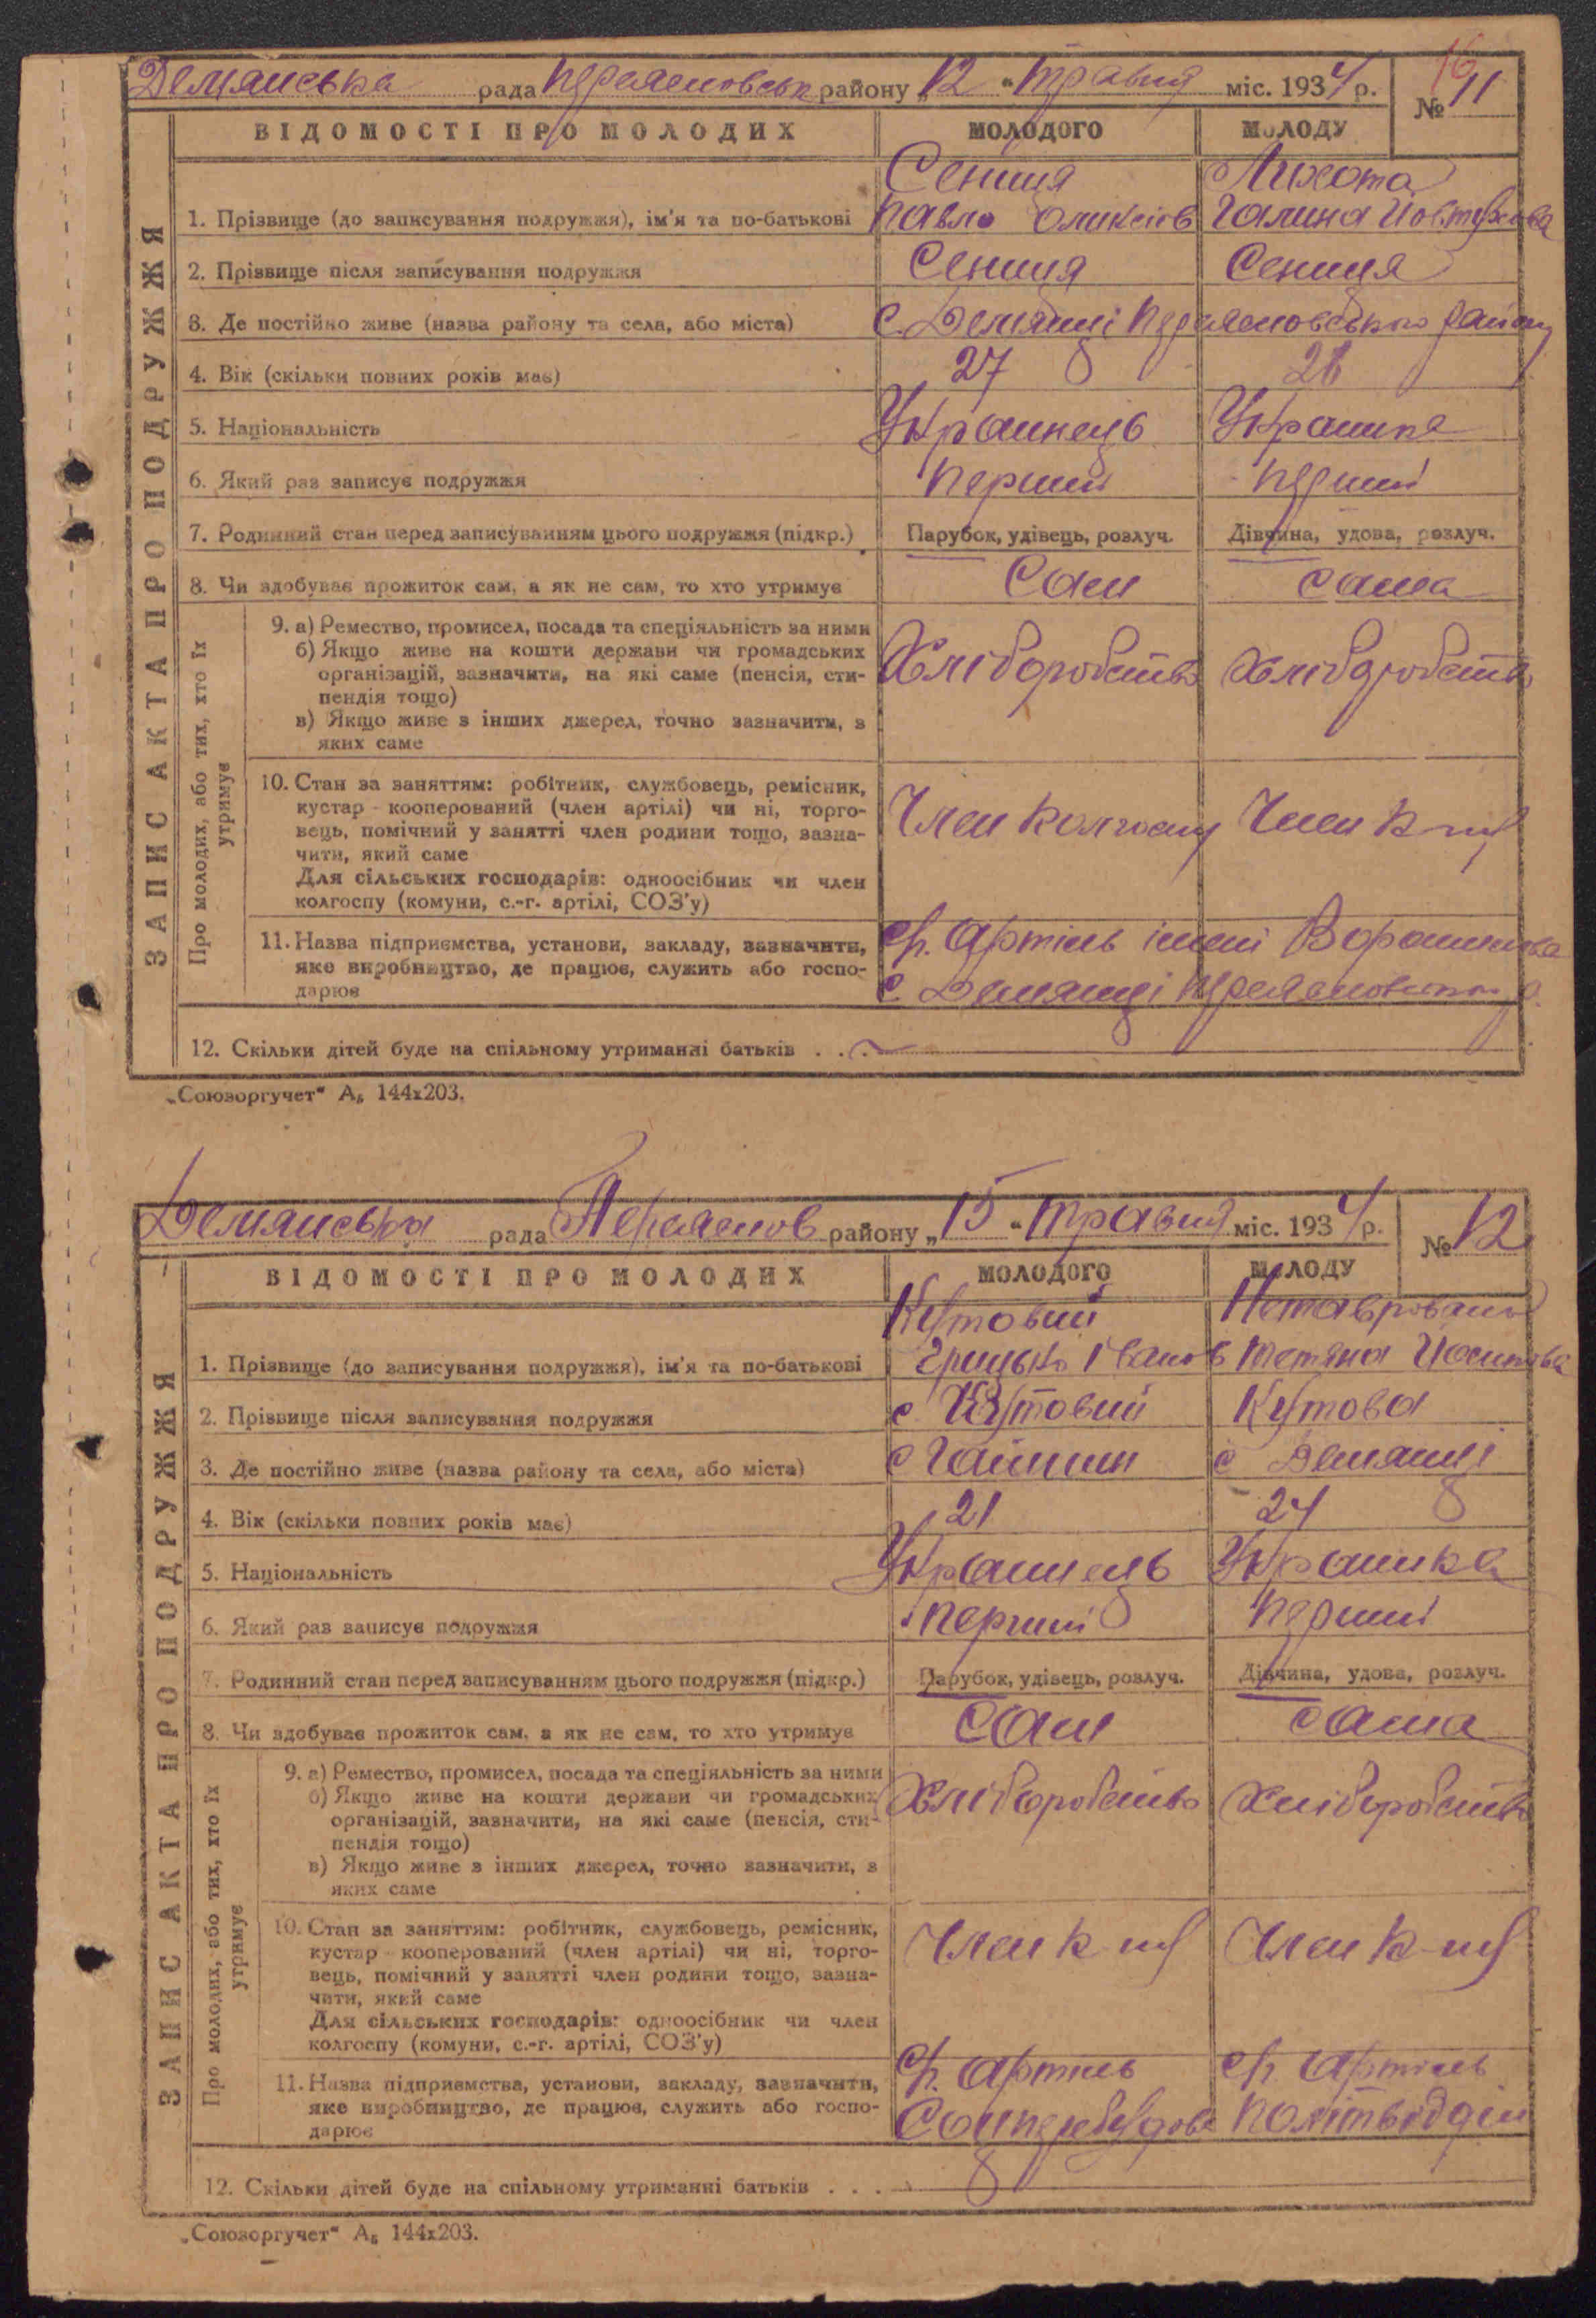 16
Демянська рада Переясловськ району „12“ травня міс. 1934 р. № 11
ВІДОМОСТІ ПРО МОЛОДИХ МОЛОДОГО МОЛОДУ
ЗАПИС АКТА ПРО ПОДРУЖЖЯ
Сениця Лихота
1. Прізвище (до записування подружжя), ім'я та по-батькові Павло Оликсіїв Галина
2. Прізвище після записування подружжя Сениця Сениця
3. Де постійно живе (назва району та села, або міста) с. Демянці Переясловського району
4. Вік (скільки повних років має) 27
5. Національність Українець Українка
6. Який раз записує подружжя Перший Перший
7. Родинний стан перед записуванням цього подружжя (підкр.) Парубок, удівець, розлуч. Дівчина, удова, розлуч.
8. Чи здобуває прожиток сам, а як не сам, то хто утримує Сам сама
Про молодих, або тих, хто їх утримує
9. а) Ремество, промисел, посада та спеціяльність за ними
б) Якщо живе на кошти держави чи громадських Хліборобство хліборобство
організацій, зазначити, на які саме (пенсія, сти-
пендія тощо)
в) Якщо живе з інших джерел, точно зазначити, з
яких саме
10. Стан за заняттям: робітник, службовець, ремісник,
кустар - кооперований (член артілі) чи ні, торго-
вець, помічний у занятті член родини тощо, зазна- Член колгоспу Член к-пу
чити, який саме
Для сільських господарів: одноосібник чи член
колгоспу (комуни, с.-г. артілі, СОЗ'у)
11. Назва підприємства, установи, закладу, зазначити, артіль імені Ворошилова
яке виробництво, де працює, служить або госпо- с. Демянці Переясловського р.
дарює
12. Скільки дітей буде на спільному утриманні батьків . . .
„Союзоргучет“ А₅ 144х203.
Демянська рада Переяслов району „15“ травня міс. 1934 р. № 12
ВІДОМОСТІ ПРО МОЛОДИХ МОЛОДОГО МОЛОДУ
ЗАПИС АКТА ПРО ПОДРУЖЖЯ
Кутовий Нетаврована
1. Прізвище (до записування подружжя), ім'я та по-батькові Грицько Іванов Тетяна Йосипова
2. Прізвище після записування подружжя Кутовий Кутова
3. Де постійно живе (назва району та села, або міста) с Гайшин с Демянці
4. Вік (скільки повних років має) 21 24
5. Національність Українець Українка
6. Який раз записує подружжя Перший Перший
7. Родинний стан перед записуванням цього подружжя (підкр.) Парубок, удівець, розлуч. Дівчина, удова, розлуч.
8. Чи здобуває прожиток сам, а як не сам, то хто утримує сам сама
Про молодих, або тих, хто їх утримує
9. а) Ремество, промисел, посада та спеціяльність за ними
б) Якщо живе на кошти держави чи громадських Хліборобство Хліборобство
організацій, зазначити, на які саме (пенсія, сти-
пендія тощо)
в) Якщо живе з інших джерел, точно зазначити, з
яких саме
10. Стан за заняттям: робітник, службовець, ремісник,
кустар - кооперований (член артілі) чи ні, торго- Член к-пу Член к-пу
вець, помічний у занятті член родини тощо, зазна-
чити, який саме
Для сільських господарів: одноосібник чи член
колгоспу (комуни, с.-г. артілі, СОЗ'у)
11. Назва підприємства, установи, закладу, зазначити, артіль артіль
яке виробництво, де працює, служить або госпо- Соцперебудова Політвідділ
дарює
12. Скільки дітей буде на спільному утриманні батьків . . .
„Союзоргучет“ А₅ 144х203.